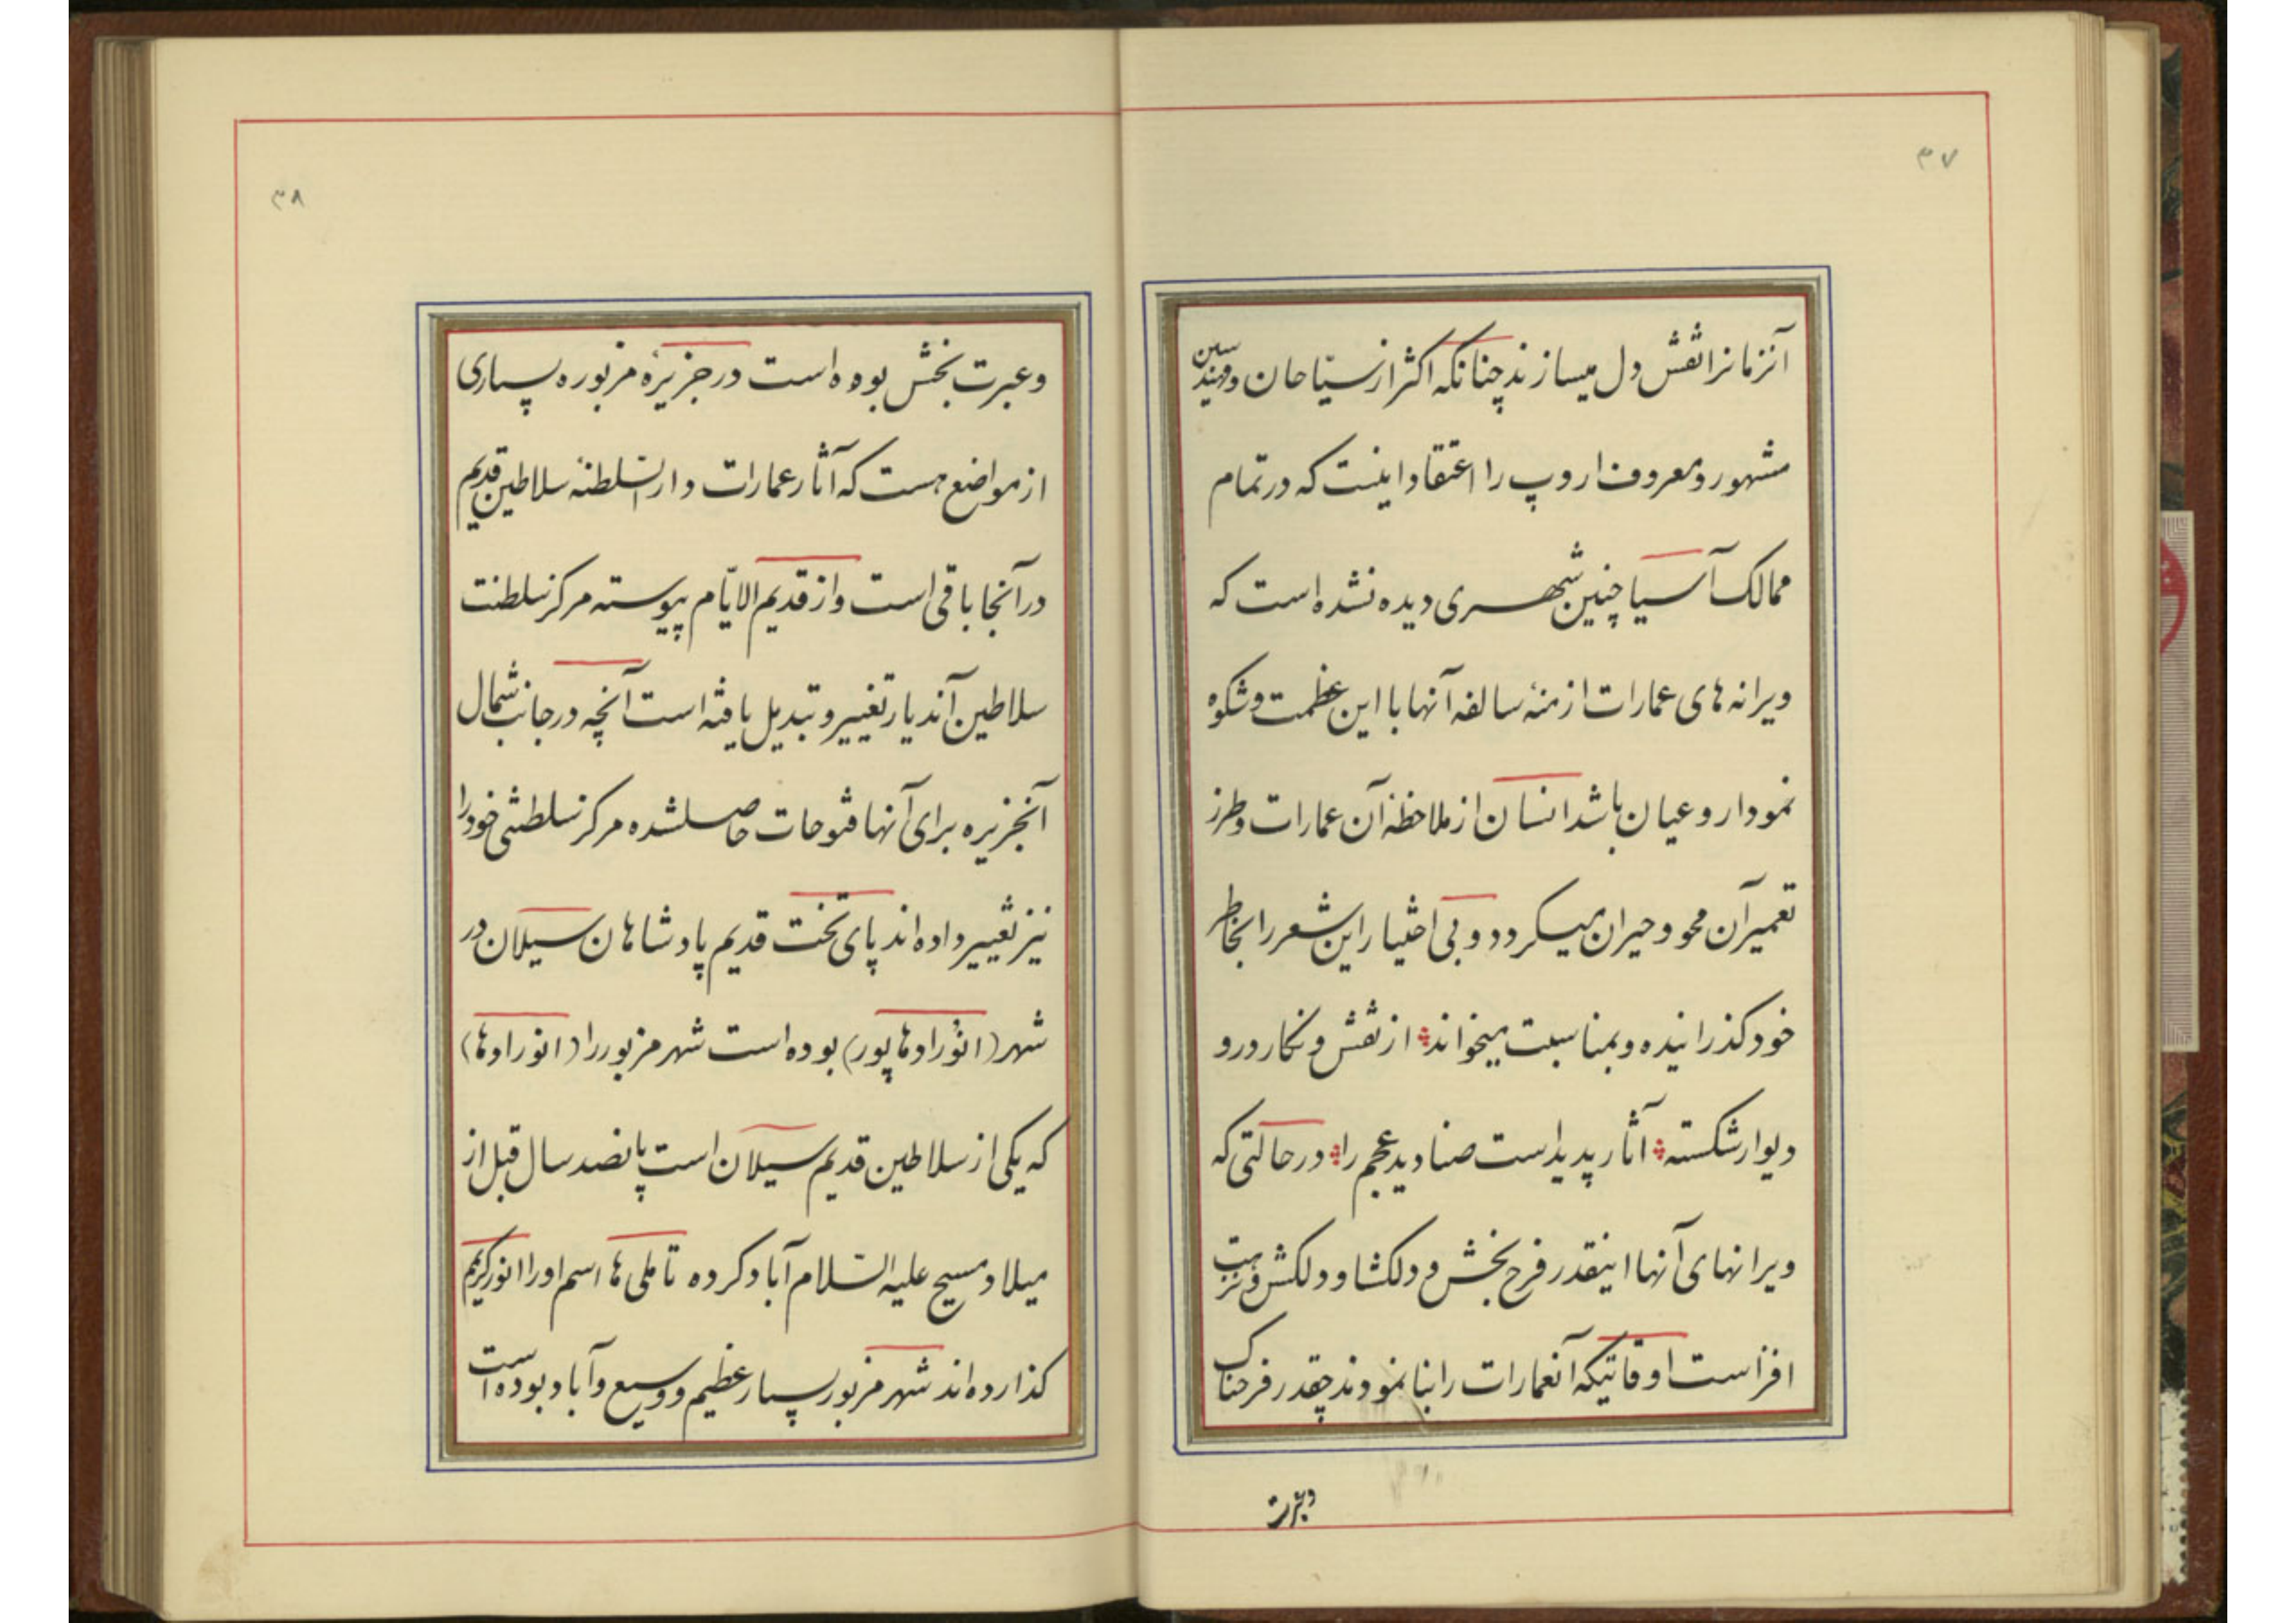 ۳۷
آنزمانرا نقش دل میسازند چنانکه اکثر از سیّاحان و مهندسین
مشهور و معروف اروپ را اعتقاد اینست که در تمام
ممالک آسیا چنین شهری دیده نشده است که
ویرانه های عمارات ازمنهٔ سالفه آنها با این عظمت و شکوه
نمودار و عیان باشد انسان از ملاحظهٔ آن عمارات و طرز
تعمیر آن محو و حیران میکردد و بی اختیار این شعر را بخاطر
خود کذرانیده و بمناسبت میخواند از نقش و نکار در و
دیوار شکسته آثار پدید است صنادید عجم را در حالتی که
ویرانهای آنها اینقدر فرح بخش و دلکشا و دلکش و نزهت
افزاست اوقاتیکه آنعمارات را بنا نمودند چقدر فرحناک
وعبرت
۳۸
وعبرت بخش بوده است در جزیرهٔ مزبوره بسیاری
از مواضع هست که آثار عمارات دارالسّلطنهٔ سلاطین قدیم
در آنجا باقی است و از قدیم الایّام پیوسته مرکز سلطنت
سلاطین آندیار تغییر و تبدیل یافته است آنچه در جانب شمال
آنجزیره برای آنها فتوحات حاصلشده مرکز سلطنتی خود را
نیز تغییر داده اند پای تخت قدیم پادشاهان سیلان در
شهر (انوُرادهاپور) بوده است شهر مزبور را (انورادها)
که یکی از سلاطین قدیم سیلان است پانصد سال قبل از
میلاد مسیح علیه السّلام آباد کرده تاملی ها اسم او را انورکریم
کذارده اند شهر مزبور بسیار عظیم و وسیع و آباد بوده است